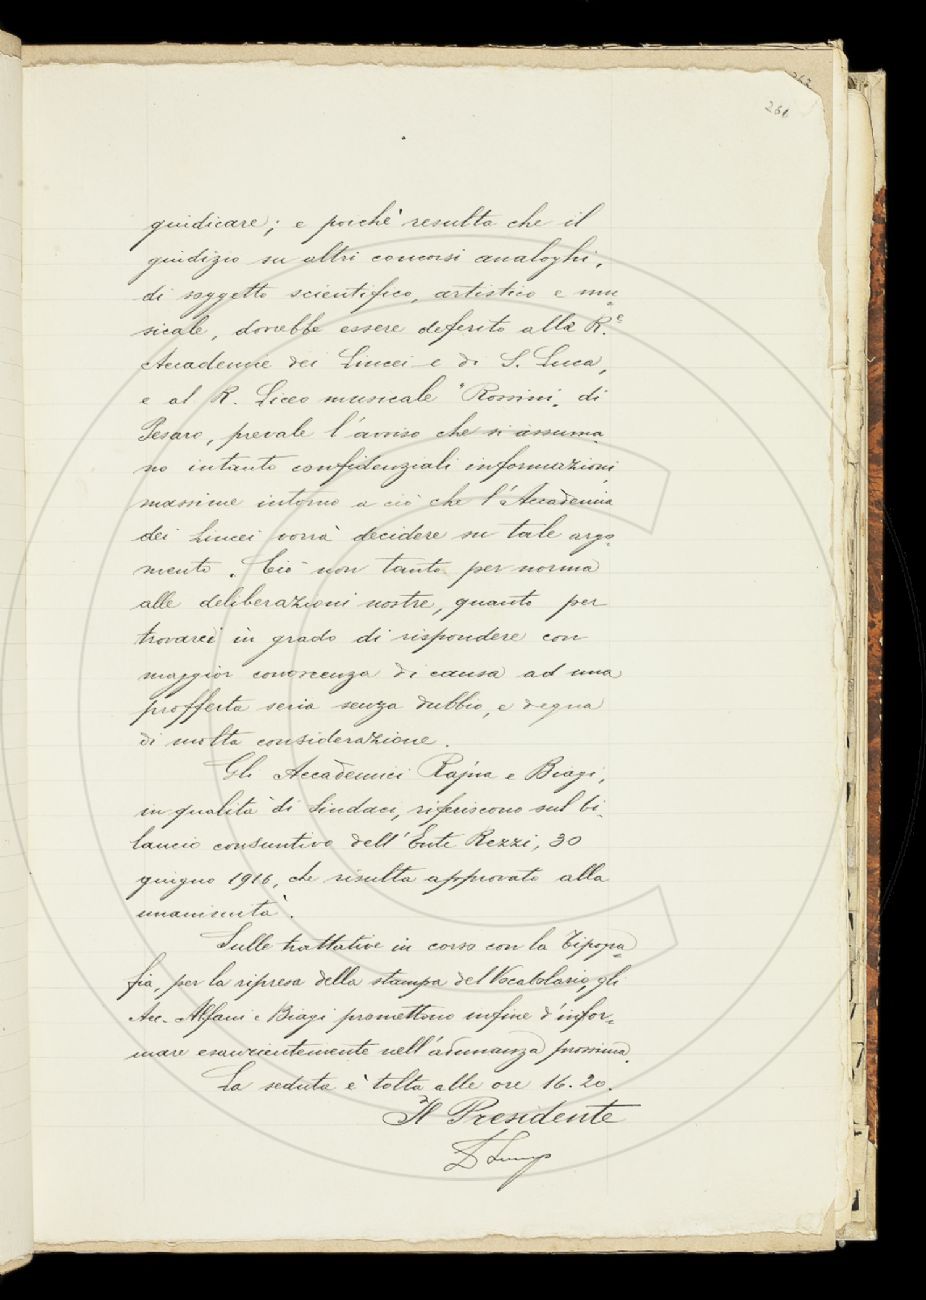 261
giudicare; e poichè resulta che il
giudizio su altri concorsi analoghi,
di soggetto scientifico, artistico e mu=
sicale, dovrebbe essere deferito alle R.e
Accademie dei Lincei e di S. Luca,
e al R. Liceo musicale "Rossini" di
Pesaro, prevale l'avviso che si assuma
no intanto confidenziali informazioni,
massime intorno a ciò che l'Accademia
dei Lincei vorrà decidere su tale argo=
mento. Ciò non tanto per norma
alle deliberazioni nostre, quanto per
trovarci in grado di rispondere con
maggior conoscenza di causa ad una
profferta seria senza dubbio, e degna
di molta considerazione.
Gli Accademici Rajna e Biagi,
in qualità di Sindaci, riferiscono sul bi-
lancio consuntivo dell'Ente Rezzi, 30
giugno 1916, che risulta approvato alla
unanimità.
Sulle trattative in corso con la Tipogra=
fia, per la ripresa della stampa del Vocabolario, gli
Acc. Alfani e Biagi promettono infine d'infor=
mare esaurientemente nell'adunanza prossima.
La seduta è tolta alle ore 16.20.
Il Presidente